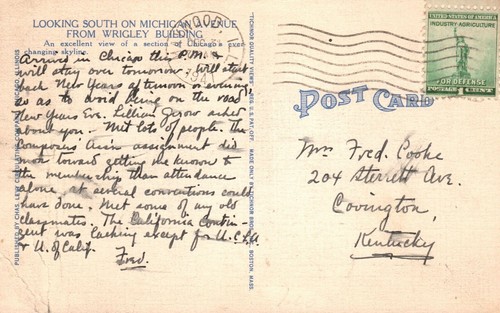 LOOKING SOUTH ON MICHIGAN AVENUE
FROM WRIGLEY BUILDING
An excellent view of a section of Chicago's ever
changing skyline.
Arrived in Chicago this P.M. &
will stay over tomorrow. Will start
back New Years afternoon or evening
so as to avoid being on the road
New Years Eve. Lillian asked
about you. Met lots of people. The
Composers assignment did
more toward getting me known to
the membership than attendance
alone at several conventions could
have done. Met some of my old
classmates. The California Contin-
gent was lacking except for U.C.L.A.
or U. of Calif.
Fred.
PUBLISHED BY CHAS. PUBLISHING COMPANY, CHICAGO, ILLINOIS
TICHNOR QUALITY VIEWS REG. U. S. PAT. OFF. MADE ONLY BY TICHNOR BROS., INC., BOSTON, MASS.
UNITED STATES OF AMERICA
INDUSTRY AGRICULTURE
FOR DEFENSE
POSTAGE 1 CENT
POST CARD
Mrs Fred. Cooke
204 Sterrett Ave.
Covington,
Kentucky